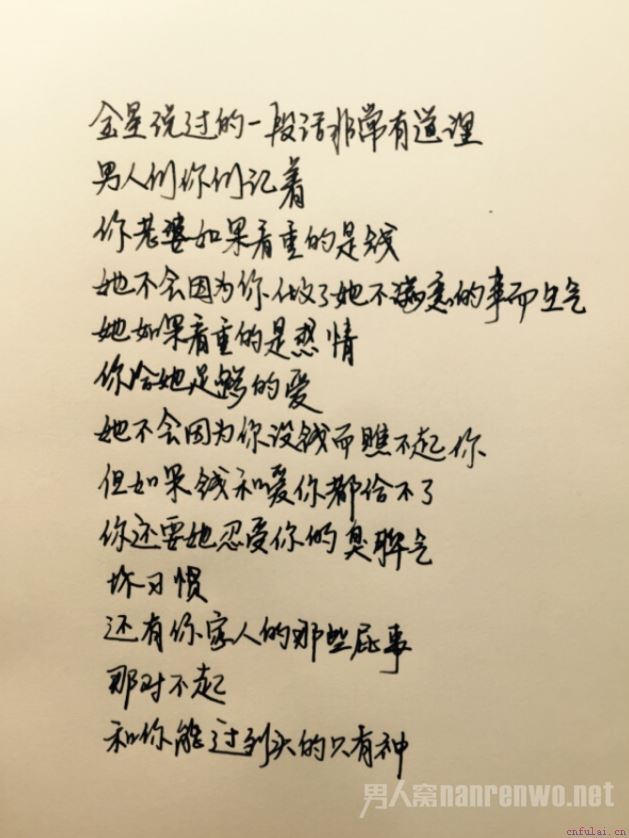 金星说过的一段话非常有道理
男人们你们记着
你老婆如果看重的是钱
她不会因为你做了她不满意的事而生气
她如果看重的是感情
你给她足够的爱
她不会因为你没钱而瞧不起你
但如果钱和爱你都给不了
你还要她忍受你的臭脾气
坏习惯
还有你家人的那些屁事
那对不起
和你能过到头的只有神
男人窝nanrenwo.net
cnfulai.cn